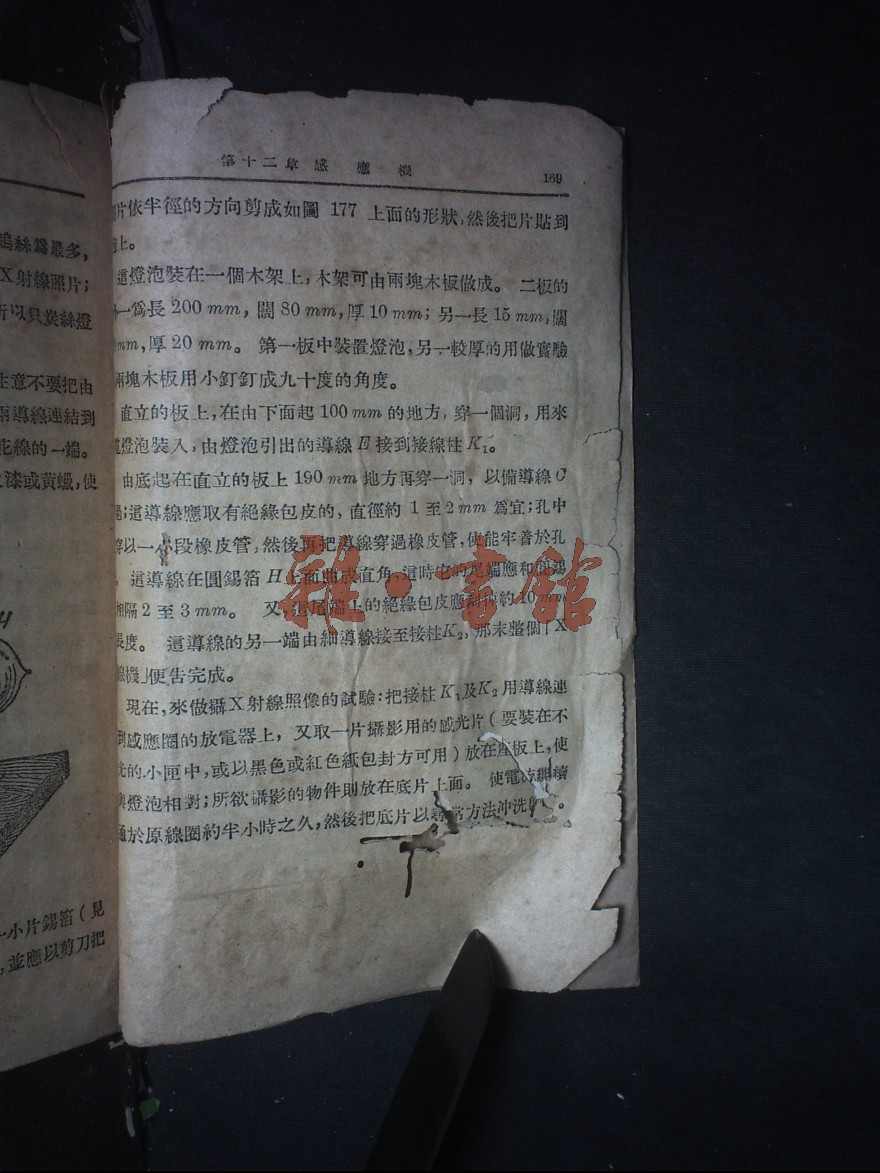 鎢絲爲最多,
X射線照片;
所以具炭絲燈
注意不要把由
兩導線連結到
花線的一端。
漆或黃蠟,使
一小片錫箔(見
,並應以剪刀把
第十二章 感應機 169
片依半徑的方向剪成如圖 177 上面的形狀,然後把片貼到
上。
這燈泡裝在一個木架上,木架可由兩塊木板做成。 二板的
一爲長 200 mm, 闊 80 mm, 厚 10 mm; 另一長 15 mm, 闊
mm, 厚 20 mm。 第一板中裝置燈泡,另一較厚的用做實驗
兩塊木板用小釘釘成九十度的角度。
直立的板上,在由下面起 100 mm 的地方,穿一個洞,用來
燈泡裝入,由燈泡引出的導線 E 接到接線柱 K₁。
由底起在直立的板上 190 mm 地方再穿一洞,以備導線 C
;這導線應取有絕緣包皮的,直徑約 1 至 2 mm 爲宜;孔中
以一小段橡皮管,然後再把導線穿過橡皮管,使能牢着於孔
。 這導線在圓錫箔 H 上面曲成直角,這時它的尾端應和
相隔 2 至 3 mm。 又,這尾端上的絕緣包皮應 約 10 mm
長度。 這導線的另一端由細導線接至接柱 K₂,那末整個「X
線機」便告完成。
現在,來做攝X射線照像的試驗:把接柱 K₁ 及 K₂ 用導線連
到感應圈的放電器上, 又取一片攝影用的感光片(要裝在不
光的小匣中,或以黑色或紅色紙包封方可用)放在座板上,使
與燈泡相對;所欲攝影的物件則放在底片上面。 使電流繼續
通於原線圈約半小時之久,然後把底片以尋常方法冲洗 。
雜·書館